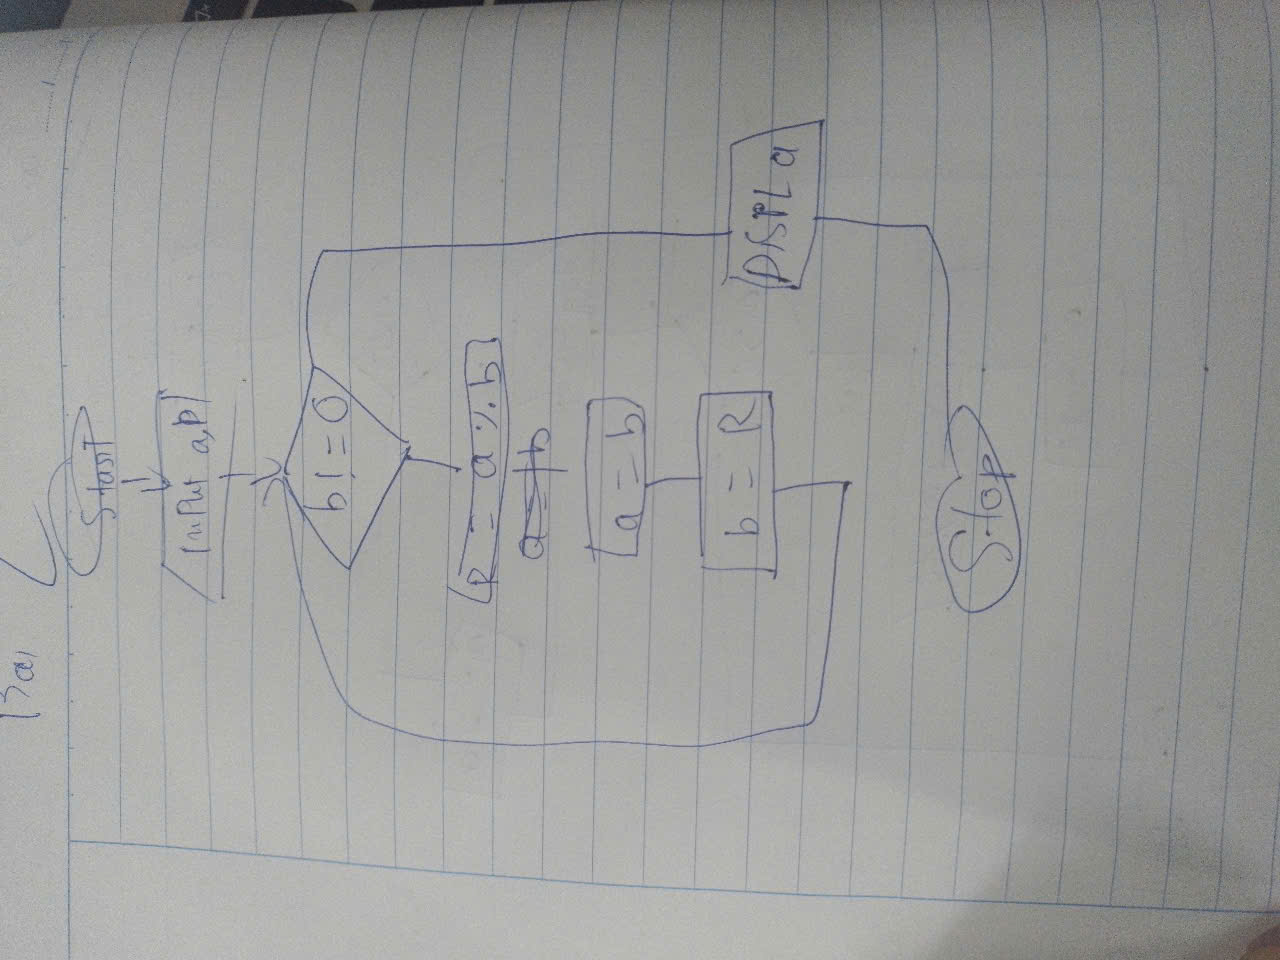 Start
Input a,b
b!=0
R = a%b
a=b
a = b
b = R
DISPL a
Stop